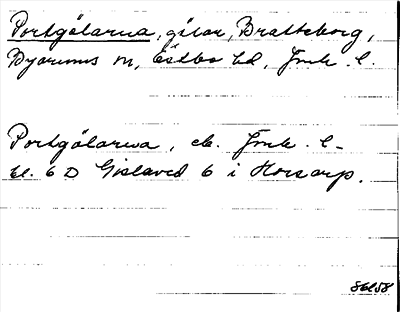 Portgölarna, gölar, Bratteborg,
Byarums sn, Östbo hd, Jmk. l.
Portgölarna, ek. Jmk. l-
bl. 6 D Gislaved 6 i Horsarp.
86858